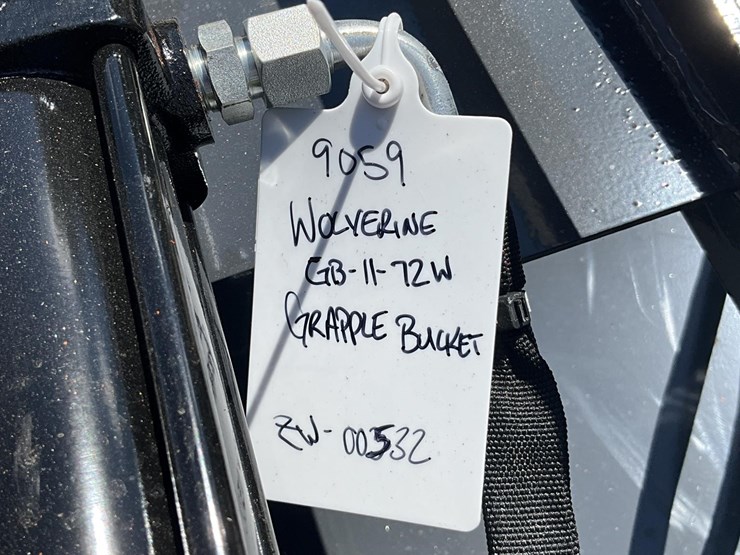 9059
WOLVERINE
GB-11-72W
GRAPPLE BUCKET
ZW-00532